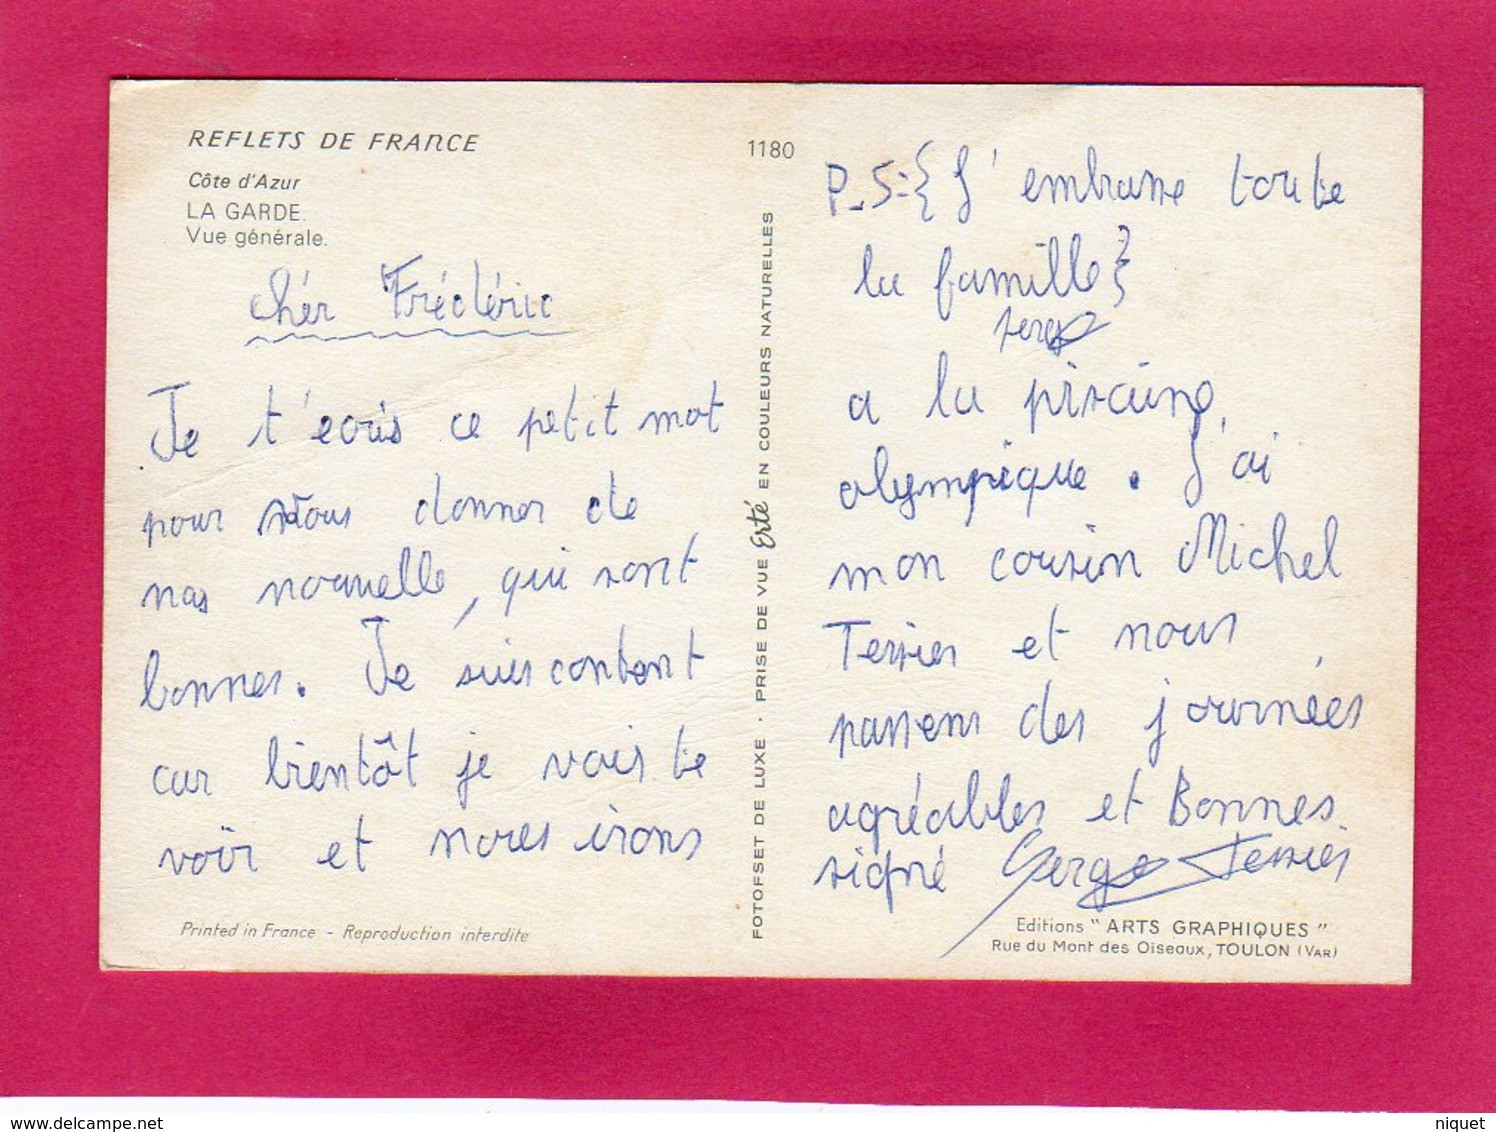 REFLETS DE FRANCE
Côte d'Azur
LA GARDE.
Vue générale.
chér Frédéric
Je t'ecris ce petit mot
pour vous donner de
nos nouvelle, qui sont
bonnes. Je suis content
car bientôt je vais te
voir et nous irons
Printed in France - Reproduction interdite
1180
FOTOFSET DE LUXE · PRISE DE VUE Erté EN COULEURS NATURELLES
P.S:{J'embrasse toute
la famille}
serge
a la piscine
olympique. J'ai
mon cousin Michel
Terrier et nous
passens des journées
agréables et Bonnes
signé Serge Terrier
Editions "ARTS GRAPHIQUES"
Rue du Mont des Oiseaux, TOULON (VAR)
delcampe.net
niquet